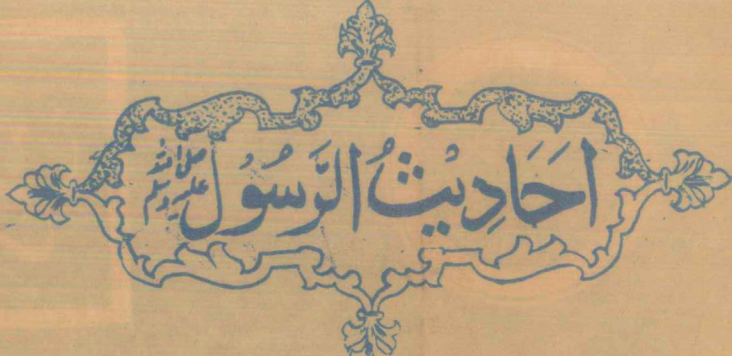 اَحَادِيْثُ الرَّسُوْل صلی اللہ علیہ وسلم